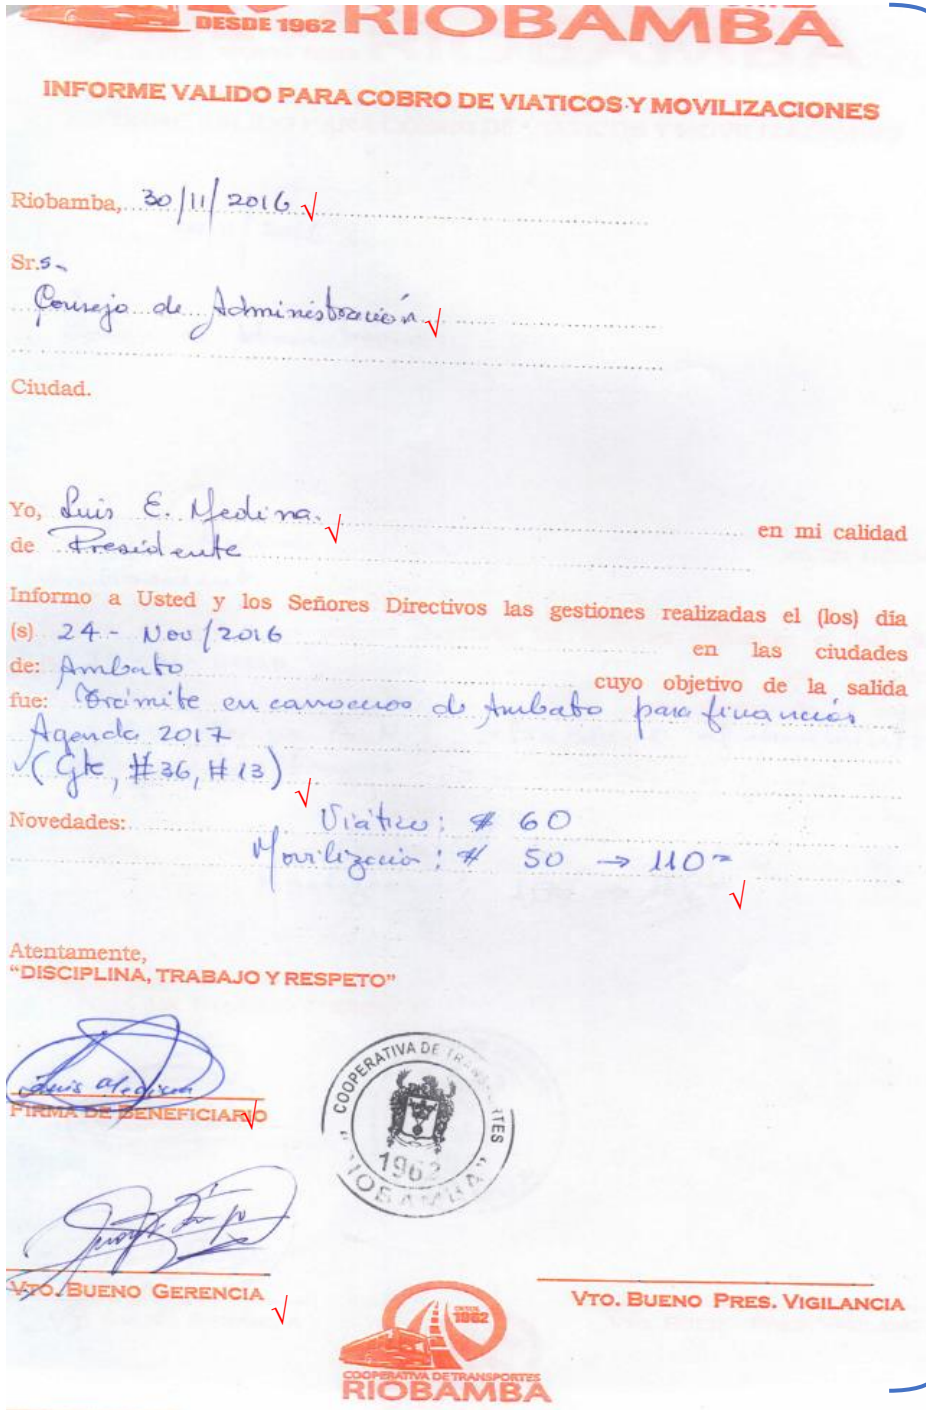 DESDE 1962 RIOBAMBA
INFORME VALIDO PARA COBRO DE VIATICOS Y MOVILIZACIONES
Riobamba, 30/11/2016 √
Sr.s.
Consejo de Administración √
Ciudad.
Yo, Luis E. Medina. √ en mi calidad
de Presidente
Informo a Usted y los Señores Directivos las gestiones realizadas el (los) día
(s) 24 - Nov/2016 en las ciudades
de: Ambato cuyo objetivo de la salida
fue: Trámite en carroceros de Ambato para financiar
Agenda 2017
√(Gte, #36, #13) √
Novedades: Viático: $ 60
Movilización: $ 50 → 110= √
Atentamente,
"DISCIPLINA, TRABAJO Y RESPETO"
Luis Medina
FIRMA DE BENEFICIARIO √
COOPERATIVA DE TRANSPORTES
1962
"RIOBAMBA"
VTO. BUENO GERENCIA √
VTO. BUENO PRES. VIGILANCIA
DESDE 1962
COOPERATIVA DE TRANSPORTES
RIOBAMBA